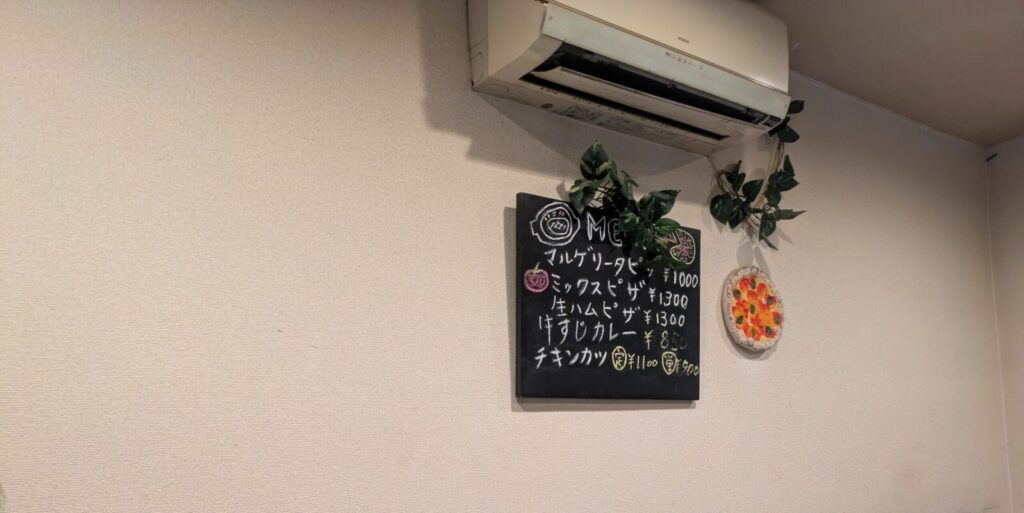 ME
マルゲリータピ ¥1000
ミックスピザ ¥1300
生ハムピザ ¥1300
牛すじカレー ¥850
チキンカツ 定 ¥1100 単 ¥900